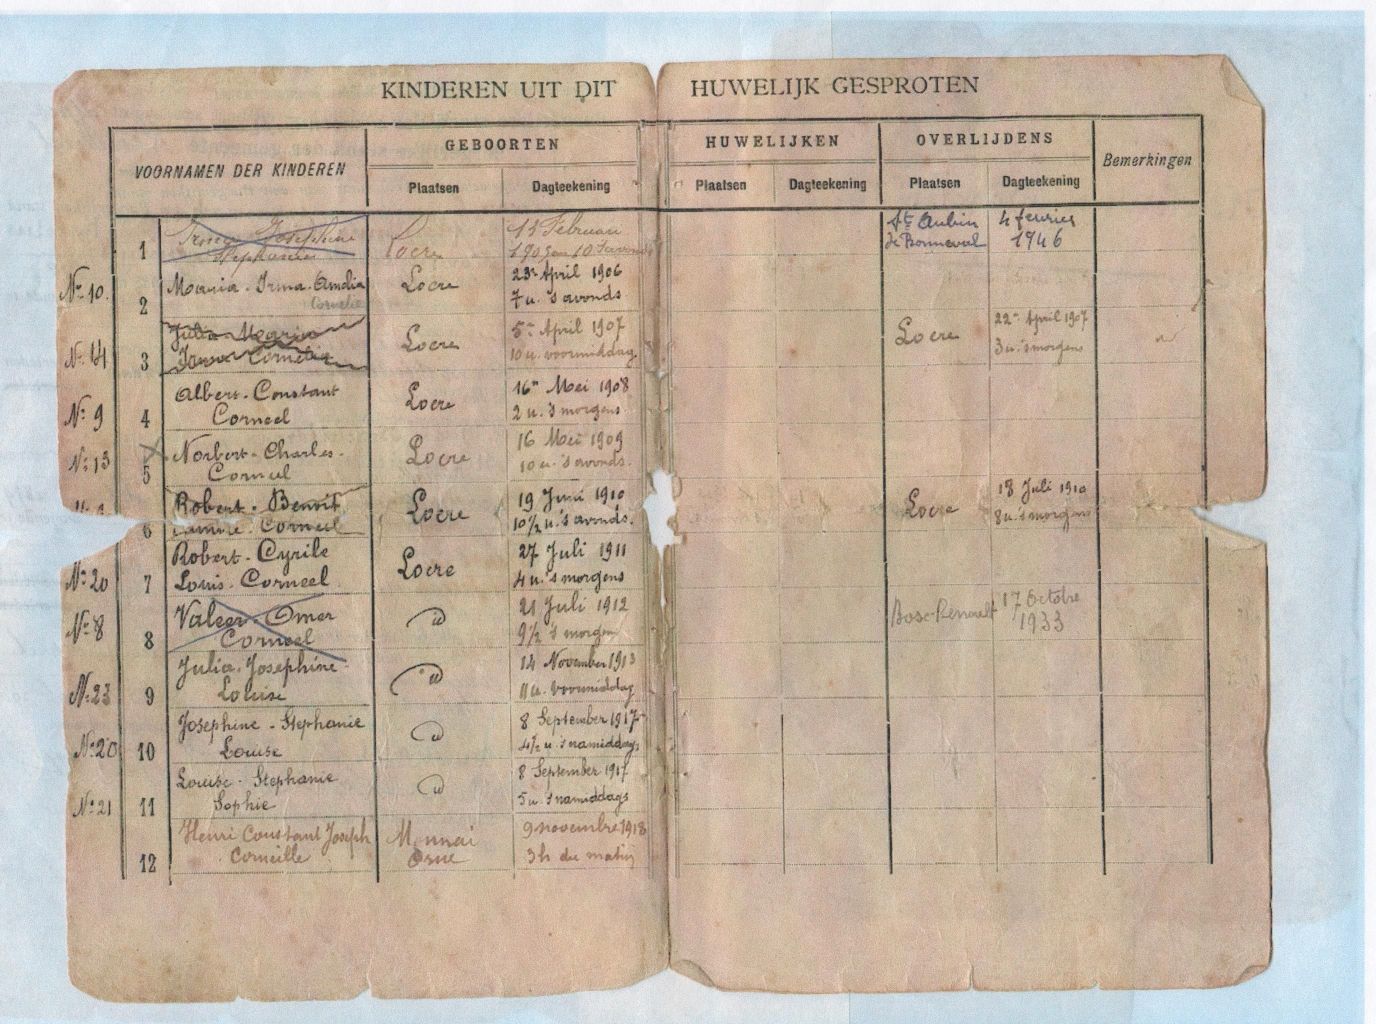 KINDEREN UIT DIT HUWELIJK GESPROTEN
VOORNAMEN DER KINDEREN
GEBOORTEN
HUWELIJKEN
OVERLIJDENS
Bemerkingen
Plaatsen Dagteekening
Plaatsen Dagteekening
Plaatsen Dagteekening
1 Irma Josephine Locre 13 Februari St Aubin 4 fevrier
Stephanie 1905 10 s'avonds de Bonneval 1946
No 10. 2 Maria - Irma - Amelia Locre 23n April 1906
Cornelia 7 u. 's avonds
No 14 3 Julia Maria Locre 5n April 1907 Locre 22n April 1907
Irma Cornelia 10 u. voormiddag 3 u. 's morgens
No 9 4 Albert - Constant Locre 16n Mei 1908
Corneel 2 u. 's morgens
No 13 5 Norbert - Charles - Locre 16 Mei 1909
Corneel 10 u. 's avonds.
6 Robert - Benoit Locre 19 Juni 1910 Locre 18 Juli 1910
Corneel 10 1/2 u. 's avonds. 8 u. 's morgens
No 20 7 Robert - Cyrile Locre 27 Juli 1911
Louis - Corneel 4 u. 's morgens
No 8 8 Valeer - Omer " 21 Juli 1912 Bosc Renoult 17 Octobre
Corneel 9 1/2 's morgens 1933
No 23 9 Julia - Josephine " 14 November 1913
Louise 11 u. voormiddag
No 20 10 Josephine - Stephanie " 8 September 1917
Louise 4 1/2 u. 's namiddags
No 21 11 Louise - Stephanie " 8 September 1917
Sophie 5 u. 's namiddags
12 Henri Constant Joseph 9 novembre 1918
Corneille Orne 3 h du matin